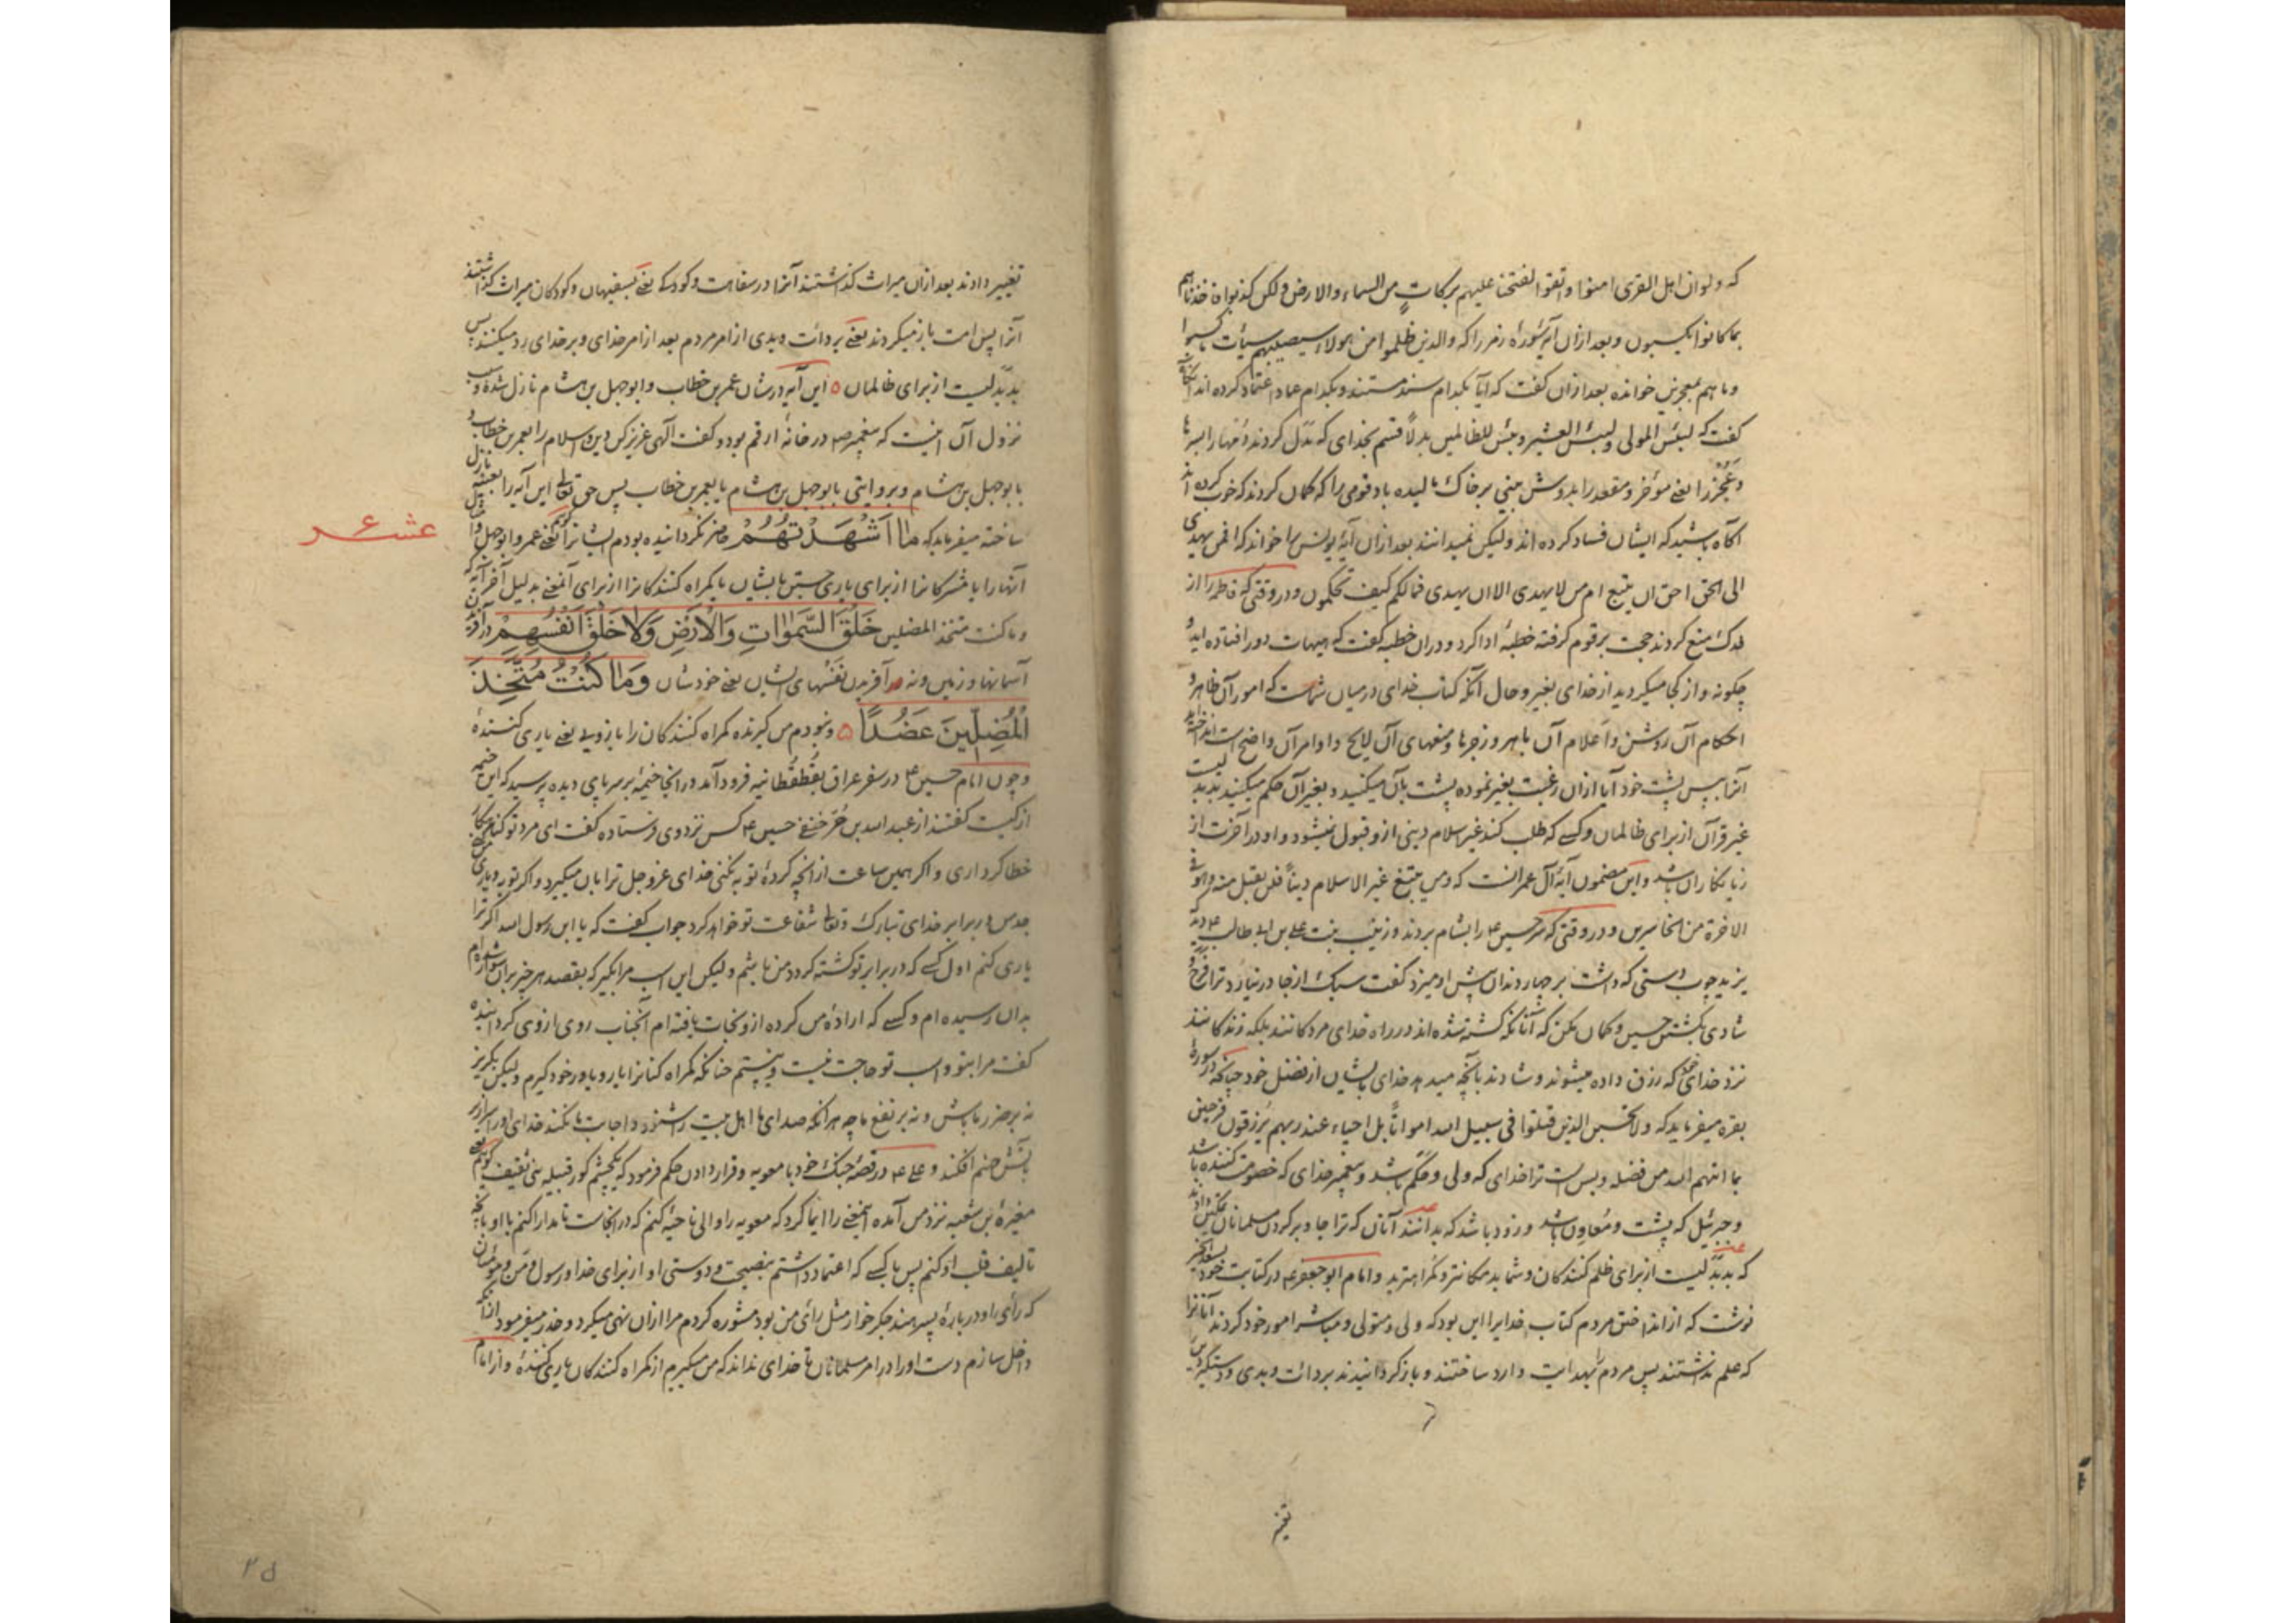 که ولوان اهل القری امنوا واتقوا لفتحنا علیهم برکات من السماء والارض ولکن کذبوا فاخذناهم
بما کانوا یکسبون وبعد ازان آیه سورۀ زمر را که والذین ظلموا من هولاء سیصیبهم سیات ما کسبوا
وما هم بمعجزین خوانده بعد ازان کفت که ایا بکدام سند مستند وبکدام عماد اعتماد کرده اند
کفت که لبئس المولی ولبئس العشیر وبئس للظالمین بدلاً قسم بخدای که بدل کردند را بسرها
وعجز را یعنی مؤخر ومقعد را بدوش بینی بر خاک مالیده باد قومی را که کمان کردند که خوب کرده اند
آکاه باشید که ایشان فساد کرده اند ولیکن نمیدانند بعد ازان آیۀ یونس را خواند که افمن یهدی
الی الحق احق ان یتبع ام من لا یهدی الا ان یهدی فمالکم کیف تحکمون ودر وقتی که فاطمه را از
فدک منع کردند حجت بر قوم کرفته خطبۀ ادا کرد ودران خطبه کفت که هیهات دور افتاده اید و
چکونه واز کجا میکردید از خدای بغیر وحال آنکه کتاب خدای درمیان شماست که امور آن ظاهر و
احکام آن روشن واعلام آن باهر وزجرها ومنعهای آن لایح واوامر آن واضح است
آنرا پس پشت خود آیا ازان رغبت بغیر نموده پشت بان میکنید وبغیر آن حکم میکنید بد بدلیست
غیر قرآن از برای ظالمان وکسی که طلب کند غیر اسلام دینی از و قبول نمیشود واو در آخرت از
زیانکاران باشد واین مضمون آیۀ آل عمرانست که ومن یبتغ غیر الاسلام دیناً فلن یقبل منه وهو فی
الاخرة من الخاسرین ودر وقتی که سر حسین ع را بشام بردند وزینب بنت علی بن ابی طالب ع دید
یزید چوب دستی که داشت بر چهار دندان پیش او میزد کفت سبک از جا در نیارد ترا فرح و
شادی بکشتن حسین وکمان مکن که آنانکه کشته شده اند در راه خدای مردکانند بلکه زندکانند
نزد خدای که رزق داده میشوند وشادند بآنچه میدهد خدای بایشان از فضل خود چنانکه در سورۀ
بقره میفرماید که ولا تحسبن الذین قتلوا فی سبیل الله امواتاً بل احیاء عند ربهم یرزقون فرحین
بما اتیهم الله من فضله وبس است ترا خدای که ولی وحکم باشد وپیغمبر خدای که خصومت کننده باشد
وجبرئیل که پشت ومعاون باشد وزود باشد که بدانند آنان که ترا جا دبر کردن مسلمانان تمکین دادند
که بد بدلیست از برای ظلم کنندکان وشما بد مکانتر وکمراهترید وامام ابو جعفر ع در کتابت خود
نوشت که از انداختن مردم کتاب خدایرا این بود که ولی ومتولی ومباشر امور خود کردند آنانرا
که علم نداشتند پس مردم را بهدایت وارد ساختند وباز کردانیدند بردائت وبدی
تغییر
تغییر دادند بعد ازان میراث کذاشتند آنرا در سفاهت وکودکی یعنی بسفیهان وکودکان میراث کذاشتند
آنرا پس امت باز میکردند یعنی بردائت وبدی از امر مردم بعد از امر خدای وبر خدای رد میکنند پس
بد بدلیست از برای ظالمان ٥ این آیه در شان عمر بن خطاب وابو جهل بن هشام نازل شده وسبب
نزول آن اینست که پیغمبر ص در خانۀ ارقم بود وکفت الهی عزیز کن دین اسلام را بعمر بن خطاب و
با بو جهل بن هشام وبروایتی بابو جهل بن هشام یا بعمر بن خطاب پس حق تعالی این آیه را نازل
ساخته میفرماید که مَا اَشْهَدْتُهُمْ حاضر نکردانیده بودم ایشانرا یعنی عمر وابو جهل را
آنها را یا مشرکانرا از برای یاری جستن بایشان یا کمراه کنندکانرا از برای آنمعنی بدلیل آخر آیه که
وما کنت متخذ المضلین خَلْقَ السَّمٰوَاتِ وَالْاَرْضِ وَلَا خَلْقَ اَنْفُسِهِمْ در آفریدن
آسمانها وزمین ونه در آفریدن نفسهای ایشان یعنی خودشان وَمَا كُنْتُ مُتَّخِذَ
الْمُضِلّٖينَ عَضُدًا ٥ ونبودم من کیرنده کمراه کنندکان را بازویی یعنی یاری کنندۀ
وچون امام حسین ع در سفر عراق بقطقطانیه فرود آمد در انجا خیمۀ بر سر پای دیده پرسید که این خیمه
از کیست کفتند از عبد الله بن حر حنفی حسین ع کس نزد وی فرستاده کفت ای مرد تو کناهکار
خطا کرداری واکر همین ساعت از انچه کردۀ توبه نکنی خدای عز وجل ترا بان میکیرد واکر توبه ویاری من کنی
جد من در برابر خدای تبارک وتعالی شفاعت تو خواهد کرد جواب کفت که یا ابن رسول الله اکر ترا
یاری کنم اول کسی که در برابر تو کشته کردد من باشم ولیکن این اسب مرا بکیر که بقصد هر چیز بران سوار شده ام
بدان رسیده ام وکسی که ارادۀ من کرده از و نجات یافته ام آنجناب روی از وی کردانیده
کفت مرا بتو واسب تو حاجت نیست ونیستم چنانکه کمراه کنانرا یار ویاور خود کیرم ولیکن بکریز
نه بر ضرر ما باش ونه بر نفع ما چه هر انکه صدای ما اهل بیت را شنود واجابت ما نکند خدای او را
بآتش جهنم افکند وعلی ع در قصۀ جنک خود با معویه وقرار دادن حکم فرمود که یکچشم کور قبیله بنی ثقیف
مغیرة بن شعبه نزد من آمده اینمعنی را ایما کرد که معویه را والی ناحیۀ کنم که در انجاست تا مدارا کنم با او بآنچه
تالیف قلب او کنم پس با کسی که اعتماد داشتم بنصیحت ودوستی او از برای خدا ورسول ومن ومؤمنان
که رأی او در بارۀ پسر هند جکرخوار مثل رأی من بود مشوره کردم مرا ازان نهی میکرد وحذر میفرمود
داخل سازم دست او را در امر مسلمانان تا خدای نداند که من میکیرم از کمراه کنندکان یاری کنندۀ واز امام
عشر
٢٥